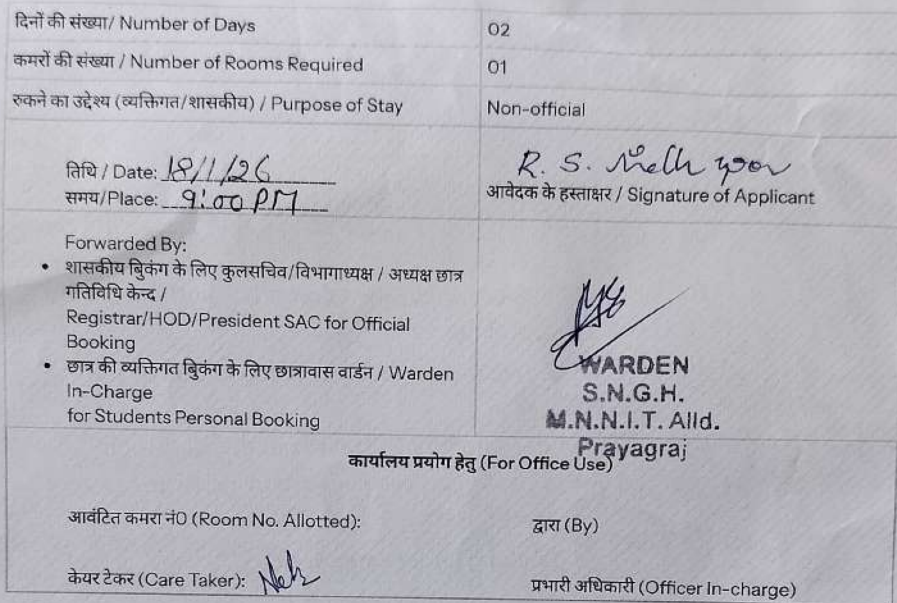 दिनों की संख्या/ Number of Days
02
कमरों की संख्या / Number of Rooms Required
01
रुकने का उद्देश्य (व्यक्तिगत/शासकीय) / Purpose of Stay
Non-official
तिथि / Date: 18/1/26
समय/Place: 9:00 PM
R. S.
आवेदक के हस्ताक्षर / Signature of Applicant
Forwarded By:
• शासकीय बुकिंग के लिए कुलसचिव/विभागाध्यक्ष / अध्यक्ष छात्र
गतिविधि केन्द /
Registrar/HOD/President SAC for Official
Booking
• छात्र की व्यक्तिगत बुकिंग के लिए छात्रावास वार्डन / Warden
In-Charge
for Students Personal Booking
WARDEN
S.N.G.H.
M.N.N.I.T. Alld.
Prayagraj
कार्यालय प्रयोग हेतु (For Office Use)
आवंटित कमरा नं0 (Room No. Allotted):
द्वारा (By)
केयर टेकर (Care Taker):
प्रभारी अधिकारी (Officer In-charge)